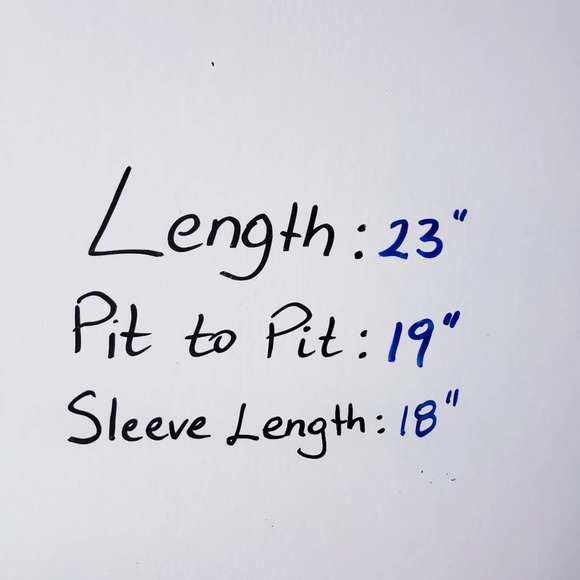 Length: 23"
Pit to Pit: 19"
Sleeve Length: 18"